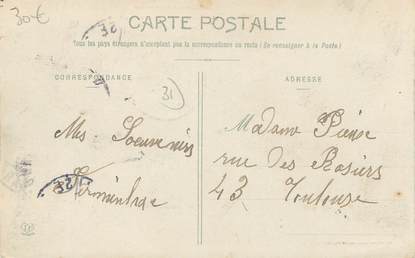 30€
CARTE POSTALE
Tous les pays étrangers n'acceptent pas la correspondance au recto (Se renseigner à la Poste)
CORRESPONDANCE
ADRESSE
31
Mes Souvenirs
Madame
rue des Rosiers
43 Toulouse